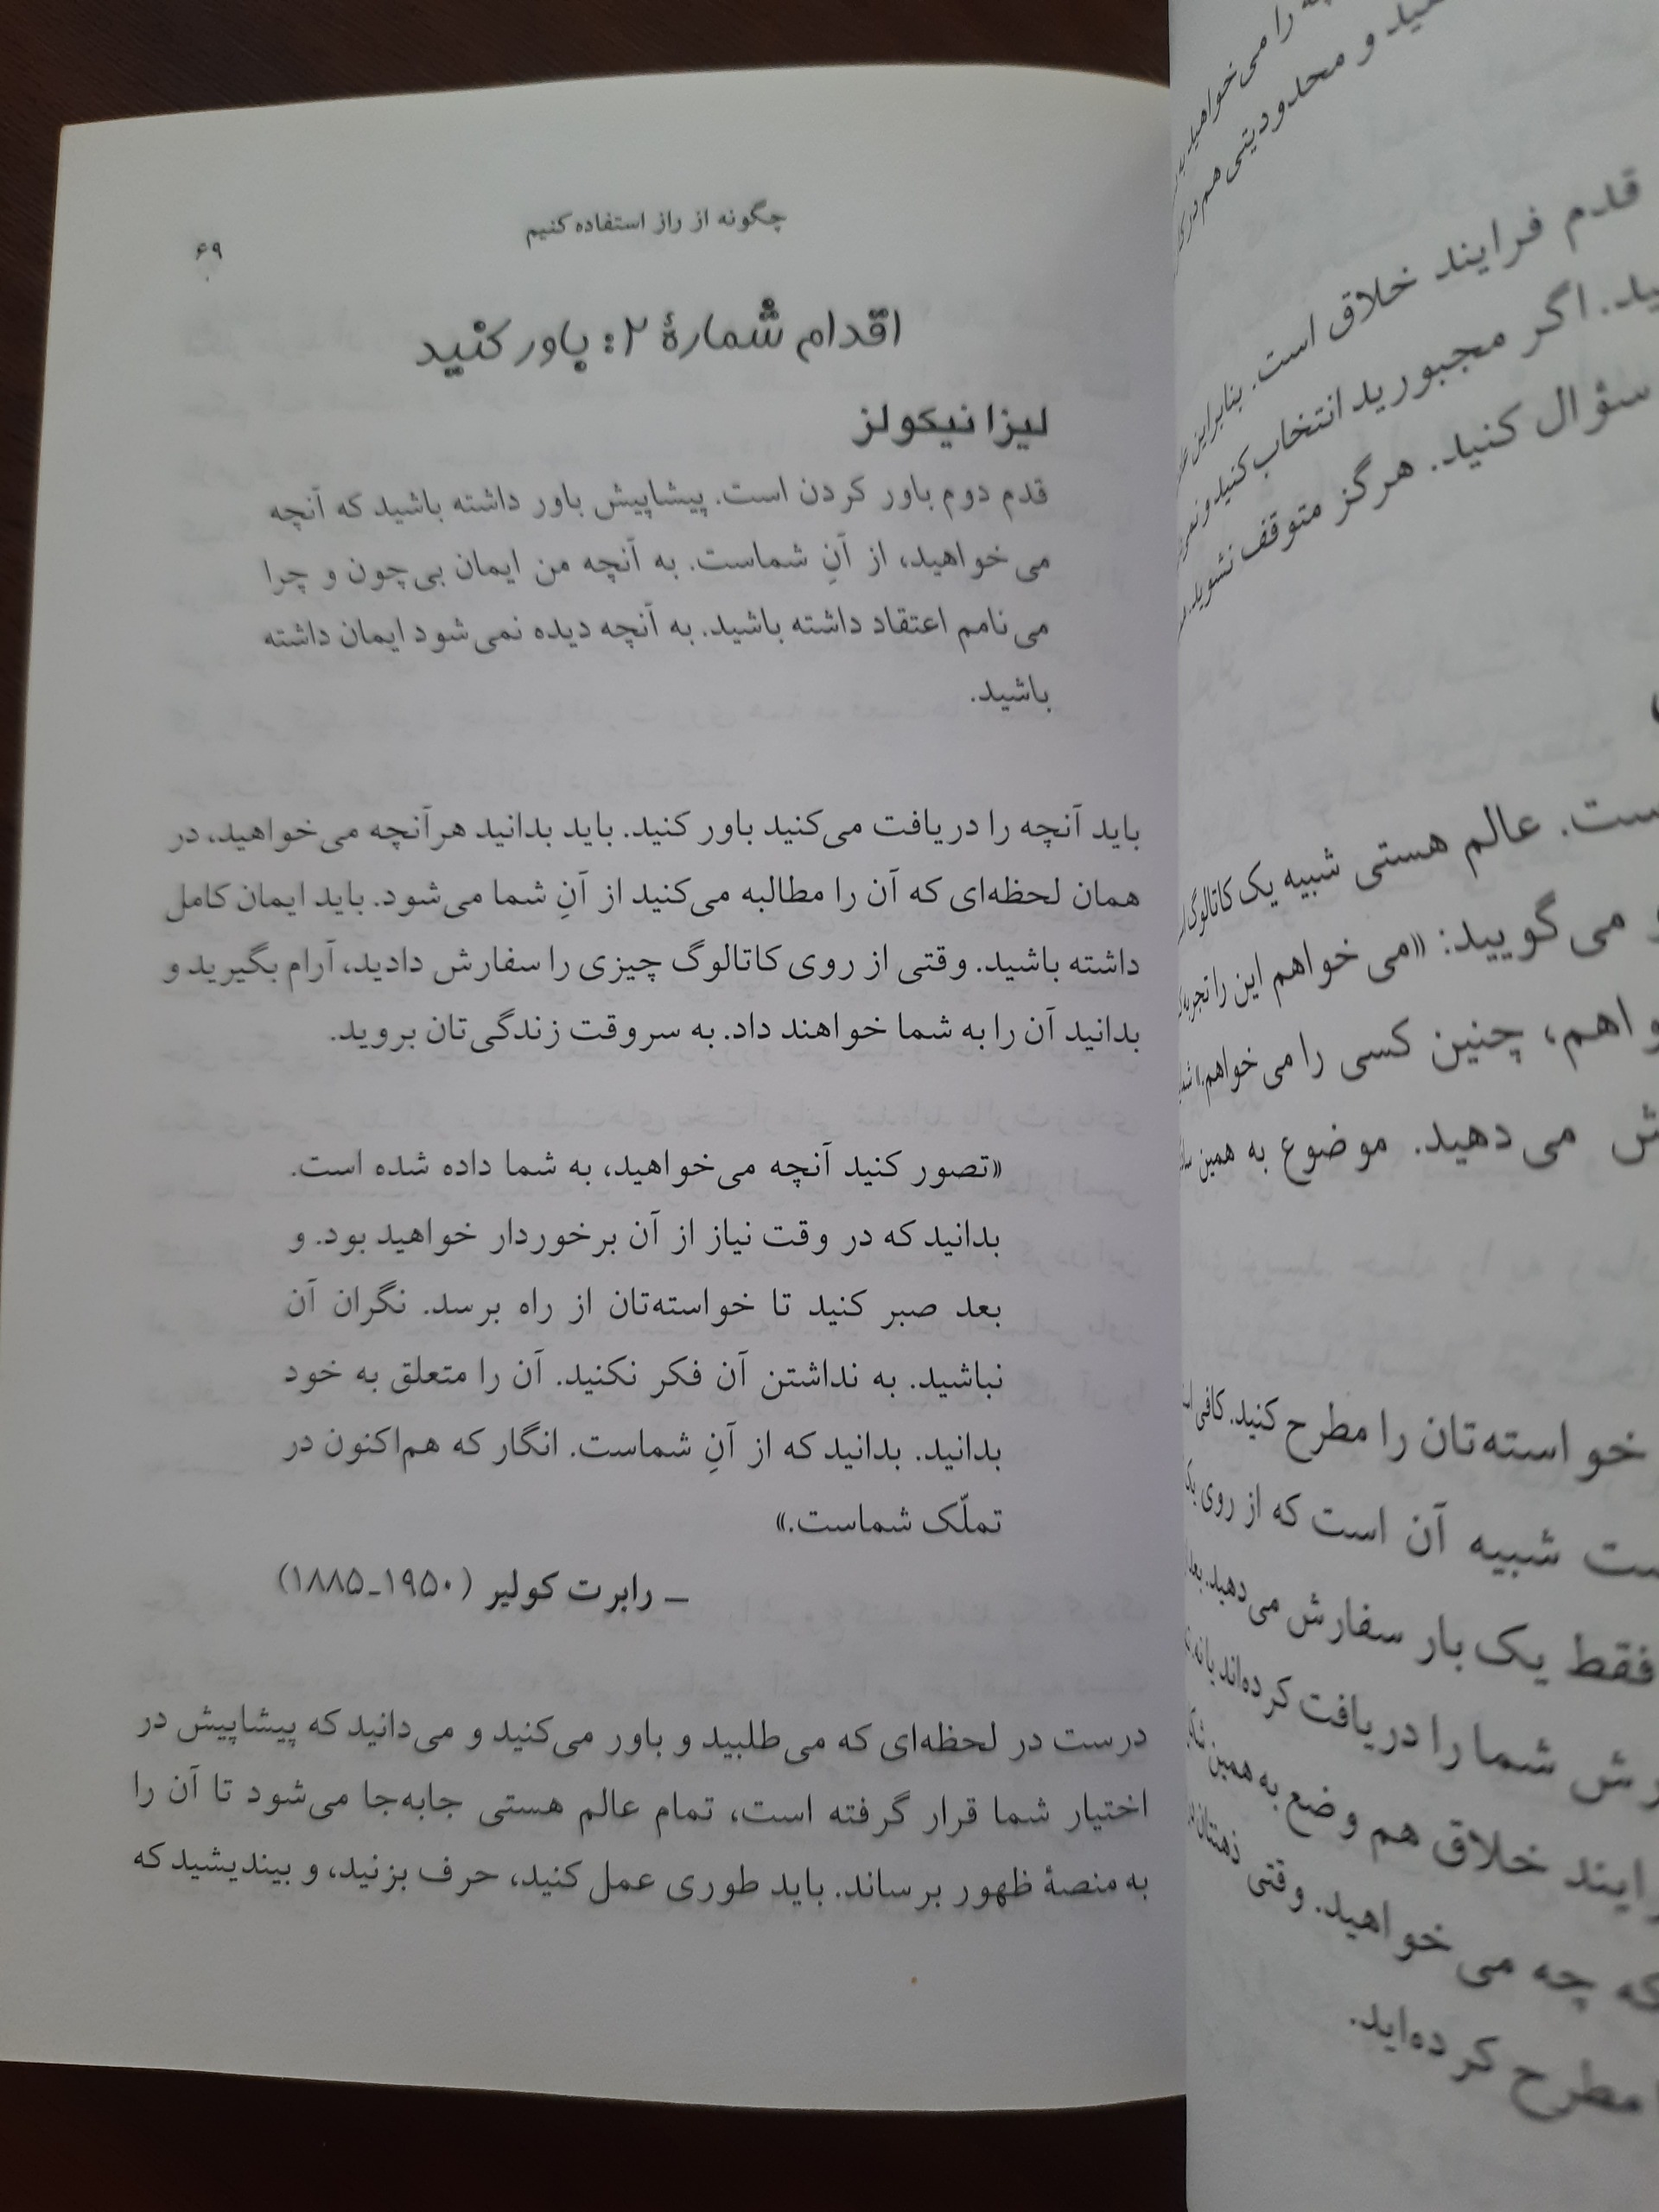 چگونه از راز استفاده کنیم
۶۹
اقدام شمارهٔ ۲: باور کنید
لیزا نیکولز
قدم دوم باور کردن است. پیشاپیش باور داشته باشید که آنچه
می‌خواهید، از آنِ شماست. به آنچه من ایمان بی‌چون و چرا
می‌نامم اعتقاد داشته باشید. به آنچه دیده نمی‌شود ایمان داشته
باشید.
باید آنچه را دریافت می‌کنید باور کنید. باید بدانید هرآنچه می‌خواهید، در
همان لحظه‌ای که آن را مطالبه می‌کنید از آنِ شما می‌شود. باید ایمان کامل
داشته باشید. وقتی از روی کاتالوگ چیزی را سفارش دادید، آرام بگیرید و
بدانید آن را به شما خواهند داد. به سروقت زندگی‌تان بروید.
«تصور کنید آنچه می‌خواهید، به شما داده شده است.
بدانید که در وقت نیاز از آن برخوردار خواهید بود. و
بعد صبر کنید تا خواسته‌تان از راه برسد. نگران آن
نباشید. به نداشتن آن فکر نکنید. آن را متعلق به خود
بدانید. بدانید که از آنِ شماست. انگار که هم‌اکنون در
تملّک شماست.»
ـ رابرت کولیر (۱۹۵۰ـ۱۸۸۵)
درست در لحظه‌ای که می‌طلبید و باور می‌کنید و می‌دانید که پیشاپیش در
اختیار شما قرار گرفته است، تمام عالم هستی جابه‌جا می‌شود تا آن را
به منصهٔ ظهور برساند. باید طوری عمل کنید، حرف بزنید، و بیندیشید که
را می‌خواهید
و محدودیتی هم در
قدم فرایند خلاق است. بنابراین
اگر مجبورید انتخاب کنید و
سؤال کنید. هرگز متوقف نشوید.
عالم هستی شبیه یک کاتالوگ
می‌گویید: «می‌خواهم این را تجربه
چنین کسی را می‌خواهم.»
می‌دهید. موضوع به همین
خواسته‌تان را مطرح کنید. کافی
شبیه آن است که از روی یک
فقط یک بار سفارش می‌دهید. بعد
شما را دریافت کرده‌اند یا نه.
خلاق هم وضع به همین
که چه می‌خواهید. وقتی ذهنتان
مطرح کرده‌اید.